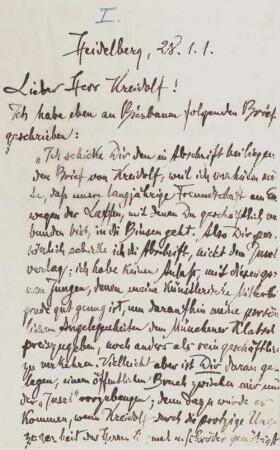 I.
Heidelberg, 28.1.1.
Lieber Herr Kreidolf!
Ich habe eben an Bierbaum folgenden Brief
geschrieben:
"Ich schicke Dir den in Abschrift beiliegen-
den Brief von Kreidolf, weil ich verhüten
möchte, daß unsre langjährige Freundschaft am En-
de wegen der Laffen, mit denen Du geschäftlich ver-
bunden bist, in die Binsen geht. Also Dir per-
sönlich schicke ich die Abschrift, nicht dem Insel-
verlag; ich habe keinen Anlaß, mit diesen grü-
nen Jungen, denen meine Künstlerische Mitarbeit
grade gut genug ist, um daraufhin meine persön-
lichen Angelegenheiten dem Münchener Klatsch
preiszugeben, noch anders als rein geschäftlich
zu verkehren. Vielleicht aber ist Dir daran ge-
legen, einen öffentlichen Bruch zwischen mir und
der "Insel" vorzubeugen; denn dazu würde es
kommen, wenn Kreidolf durch die protzige Ung
heit des Herrn